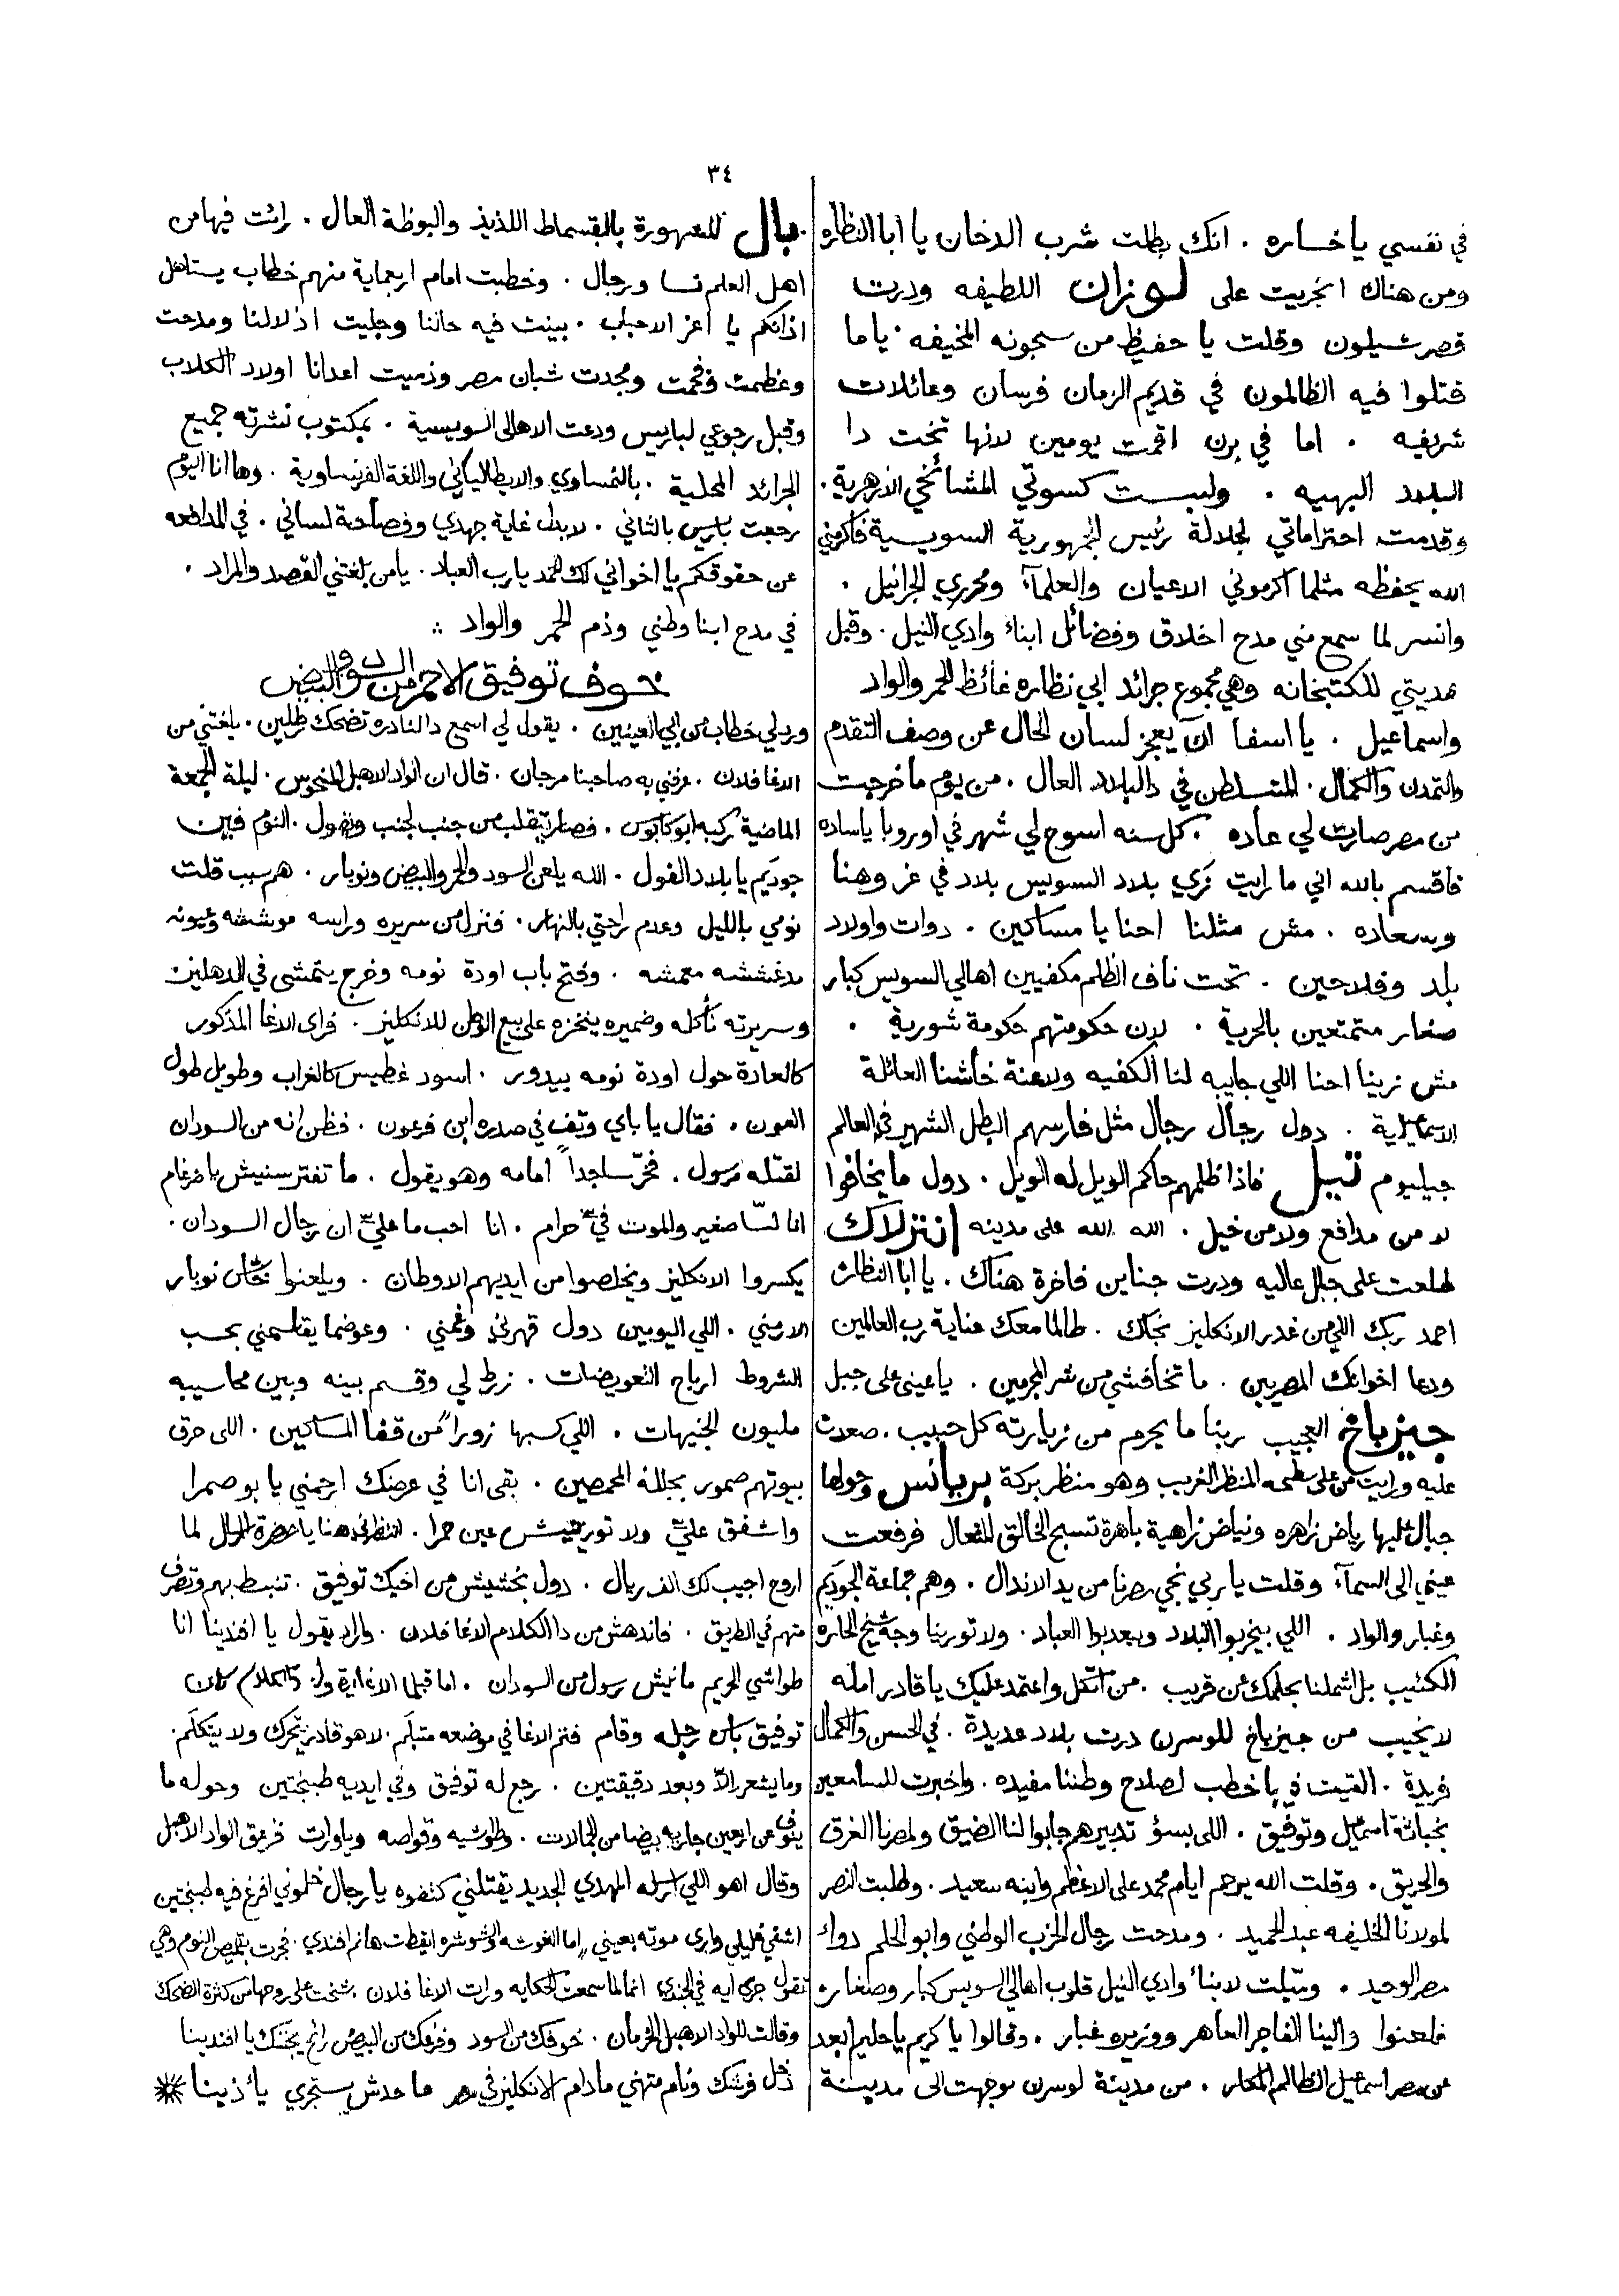 ٣٤
في نفسي ياخساره . انك بطلت شرب الدخان يا ابا النظاره
ومن هناك انجريت على لوزان اللطيفه ودرت
قصر شيلون وقلت يا حفيظ من سجونه المخيفه . ياما
قتلوا فيه الظالمون في قديم الزمان فرسان وعائلات
شريفيه . اما في برن اقمت يومين لانها تخت دا
البلاد البهيه . ولبست كسوتي المشائخي الازهرية .
وقدمت احتراماتي لجلالة رئيس الجمهورية السويسية فاكرمني
الله يحفظه مثلما اكرموني الاعيان والعلمآء ومحرري الجرانيل .
وانسر لما سمع مني مدح اخلاق وفضائل ابناء وادي النيل . وقبل
هديتي للكتبخانه وهي مجموع جرائد ابي نظاره غائظ الحمر والواد
واسماعيل . يا اسفا ان يعجز لسان الحال عن وصف التقدم
والتمدن والكمال . المتسلطن في دالبلاد العال . من يوم ما خرجت
من مصر صارت لي عاده . كل سنه اسوح لي شهر في اوروبا ياساده
فاقسم بالله اني ما رايت زي بلاد السويس بلاد في عز وهنا
وسعاده . مش مثلنا احنا يا مساكين . دوات واولاد
بلد وفلاحين . تحت ناف الظلم مكفيين اهالي السويس كبار
صغار متمتعين بالحرية . لان حكومتهم حكومة شورية .
مش زينا احنا اللي جايبه لنا الكفيه ولاعنة خاشنا العائلة
الاسماعيلية . دول رجال رجال مثل فارسهم البطل الشهير في العالم
جيليوم تيل فاذا ظلمهم حاكم الويل له الويل . دول ما يخافوا
لا من مدافع ولا من خيل . الله الله على مدينه انترلاك
طلعت على جبل عاليه ودرت جناين فاخرة هناك . يا ابا النظاره
احمد ربك اللي من غدر الانكليز نجاك . طالما معك عناية رب العالمين
ودعا اخوانك المصريين . ما تخافشي من شر المجرمين . ياعيني على جبل
جيزباخ العجيب ربنا ما يحرم من زيارته كل حبيب . صعدت
عليه ورايت من على سطحه المنظر الغريب وهو منظر بركة بريانس وحولها
جبال عليها رياض زاهره وغياض زاهية باهرة تسبح الخالق المتعال فرفعت
عيني الى السمآء وقلت يا ربي نجي مصرنا من يد الاندال . وهم جماعة الجوديم
وغبار والواد . اللي بيخربوا البلاد وبيعدبوا العباد . ولا تورينا وجه شيخ الحاره
الكئيب بل اشملنا بحلمك عن قريب . من اتكل واعتمد عليك يا قادر امله
لا يخيب من جيزباخ للوسرن درت بلاد عديدة . في الحسن والكمال
فريدة . القيت في ياخطب لصلاح وطننا مفيده . واخبرت للسامعين
بخباثة اسماعيل وتوفيق . اللي بسؤ تدبيرهم جابوا لنا الضيق ولمصرنا الغرق
والحريق . وقلت الله يرحم ايام محمد علي الاعظم وابنه سعيد . وطلبت النصر
لمولانا الخليفه عبد الحميد . ومدحت رجال الحزب الوطني وابو الحلم دواء
مصر الوحيد . وميّلت لابناء وادي النيل قلوب اهالي السويس كبار وصغار .
فلعنوا والينا الفاجر العاهر ووزيره غبار . وقالوا يا كريم يا حليم ابعد
عن مصر اسماعيل الظالم المكار . من مدينة لوسرن توجهت الى مدينة
بال المشهورة بالبقسماط اللذيذ والبوظة العال . رائت فيها من
اهل العلم نسا ورجال . وخطبت امام اربعماية منهم خطاب يستاهل
اذانكم يا اعز الاحباب . بينت فيه حالنا وجليت اذلالنا ومدحت
وعظمت وفخمت ومجدت شبان مصر وذميت اعدانا اولاد الكلاب
وقبل رجوعي لباريس ودعت الاهالي السويسية . بمكتوب نشرته جميع
الجرائد المحلية . بالنمساوي والايطالياني واللغة الفرنساوية . وها انا اليوم
رجعت باريس بالثاني . لابذل غاية جهدي وفصاحة لساني . في المدافعه
عن حقوقكم يا اخواني لك الحمد يا رب العباد . يا من بلغتني القصد والمراد .
في مدح ابنا وطني وذم الحمر والواد ..
خوف توفيق الاحمر من السود والبيض
ورد لي خطاب من ابي العينين . يقول لي اسمع دالنادره تضحك رطلين . بلغتني من
الاغا فلان . عرفني به صاحبنا مرجان . قال ان الواد الاهبل المنحوس . ليلة الجمعة
الماضية ركبه ابو كابوس . فصار يتقلب من جنب لجنب ويقول . النوم فين
جوديم يا بلاد الفول . الله يلعن السود والحمر والبيض ونوبار . هم سبب قلت
نومي بالليل وعدم راحتي بالنهار . فنزل من سريره وراسه مونشفه وعيونه
مدغششه معمشه . وفتح باب اودة نومه وخرج يتمشى في الدهليز
وسريرته تأكله وضميره ينخزه على بيع الوطن للانكليز . فراى الاغا المذكور
كالعادة حول اودة نومه بيدور . اسود غطيس كالغراب وطويل طول
العون . فقال يا باي وتف في صدره ابن فرعون . فظن انه من السودان
لقتله مرسول . فخرّ ساجداً امامه وهو يقول . ما تفترسنيش يا ضرغام
انا لسّا صغير والموت فيّ حرام . انا احب ما عليّ ان رجال السودان .
يكسروا الانكليز ويخلصوا من ايديهم الاوطان . ويلعنوا خاش نوبار
الارمني . اللي اليومين دول قهرني وغمني . وعوضما يقاسمني بحسب
الشروط ارباح التعويضات . زرط لي وقسم بينه وبين محاسيبه
مليون الجنيهات . اللي كسبها زوراً من قفا المساكين . اللي حرق
بيوتهم صمور بجللة المحمصين . بقى انا في عرضك ارحمني يا بو صمرا
واشفق عليّ ولا توريّنيش عين حمرا . انتظرني هنا يا حضرة المرال لما
اروح اجيب لك الف ريال . دول بخشيش من اخيك توفيق . تنبسط بهم وتصرف
منهم في الطريق . فاندهش من دا الكلام الاغا فلان . واراد يقول يا افندينا انا
طواشي الحريم مانيش رسول من السودان . اما قبلما الاغا
توفيق باس رجله وقام فتنّ الاغا في موضعه متبلّم . لا هو قادر يتحرك ولا يتكلّم .
وما يشعر الاّ وبعد دقيقتين . رجع له توفيق وفي ايديه طبنجتين وحوله ما
ينوف عن اربعين جاريه بيضا من الجمالات . وطواشيه وقواصه وياورات فزعق الواد الاهبل
وقال اهو اللي ارسله المهدي الجديد يقتلني كتفوه يا رجال خلوني افرغ فيه طبنجتين
اشفي غليلي وارى موته بعيني . اما الغوشه والشوشره ايقظت هانم افندي . فجرت بقميص النوم وهي
تقول جرى ايه في الجندي انما لما سمعت الحكايه ورات الاغا فلان . شخت على روحها من كثرة الضحك
وقالت للواد الاهبل الخرمان . خوفك من السود وفزعك من البيض رائح يجننك يا افندينا
ادخل فرشتك ونام متهني مادام الانكليز في مصر ما حدش يستجري يأذينا